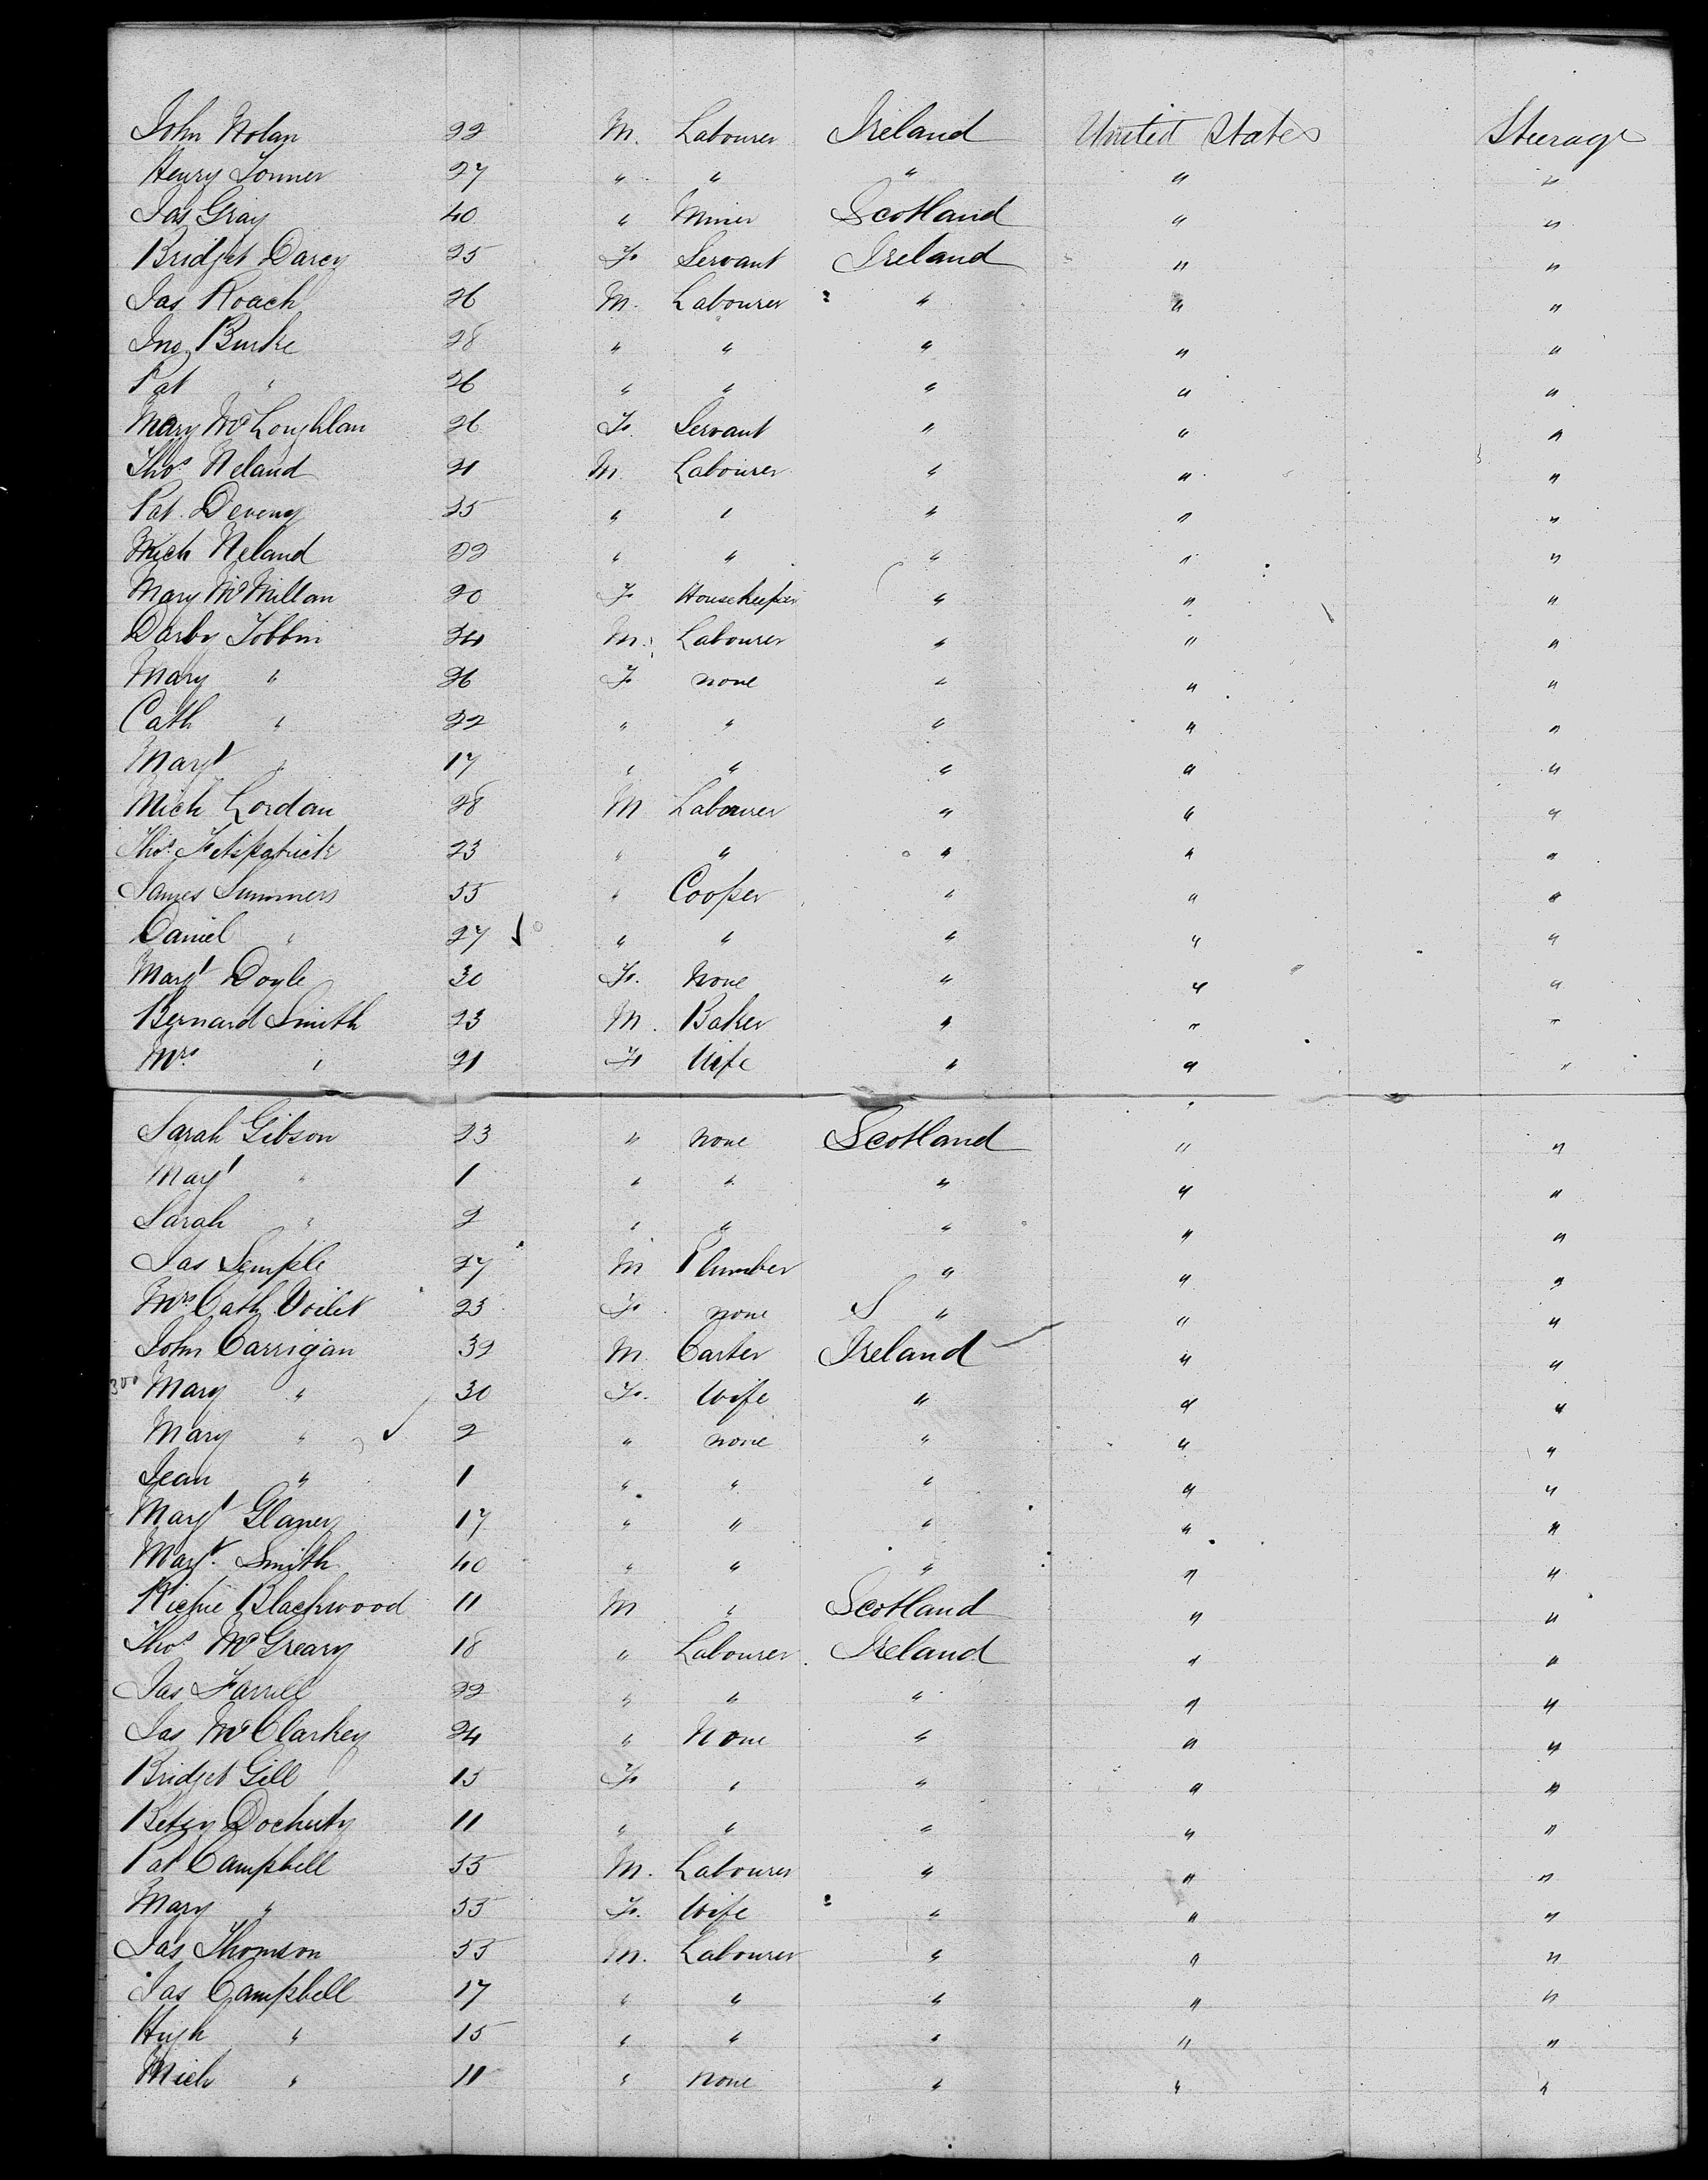 John Nolan 22 M. Labourer Ireland United States Steerage
Henry Tonner 27 " " " " "
Jas Gray 40 " Miner Scotland " "
Bridget Darcy 25 F. Servant Ireland " "
Jas Roach 26 M. Labourer " " "
Jno Burke 28 " " " " "
Pat " 26 " " " " "
Mary McLoughlan 26 F. Servant " " "
Thos Neland 21 M. Labourer " " "
Pat. Deveny 25 " " " " "
Mich Neland 22 " " " " "
Mary McMillan 20 F Housekeeper " " "
Darby Tobbin 24 M. Labourer " " "
Mary " 26 F none " " "
Cath " 22 " " " " "
Margt " 17 " " " " "
Mich Lordan 28 M Labourer " " "
Thos. Fitspatrick 23 " " " " "
James Summers 55 " Cooper " " "
Daniel " 27 " " " " "
Margt Doyle 30 F. None " " "
Bernard Smith 23 M. Baker " " "
Mrs " 21 F Wife " " "
Sarah Gibson 23 " none Scotland " "
Margt " 1 " " " " "
Sarah " 2 " " " " "
Jas Semple 27 M Plumber " " "
Mrs Cath 23 F. none S " " "
John Carrigan 32 M. Carter Ireland " "
300 Mary " 30 F. Wife " " "
Mary " 2 " none " " "
Jean " 1 " " " " "
Margt 17 " " " " "
Margt. Smith 40 " " " " "
Richie Blackwood 11 M " Scotland " "
Thos McGreary 18 " Labourer Ireland " "
Jas Farrell 22 " " " " "
Jas McClarkey 24 " None " " "
Bridget Gill 15 F " " " "
Betsy Docherty 11 " " " " "
Pat Campbell 55 M. Labourer " " "
Mary " 55 F. Wife " " "
Jas Thomson 55 M. Labourer " " "
Jas Campbell 17 " " " " "
Hugh " 15 " " " " "
Mich " 11 " none " " "